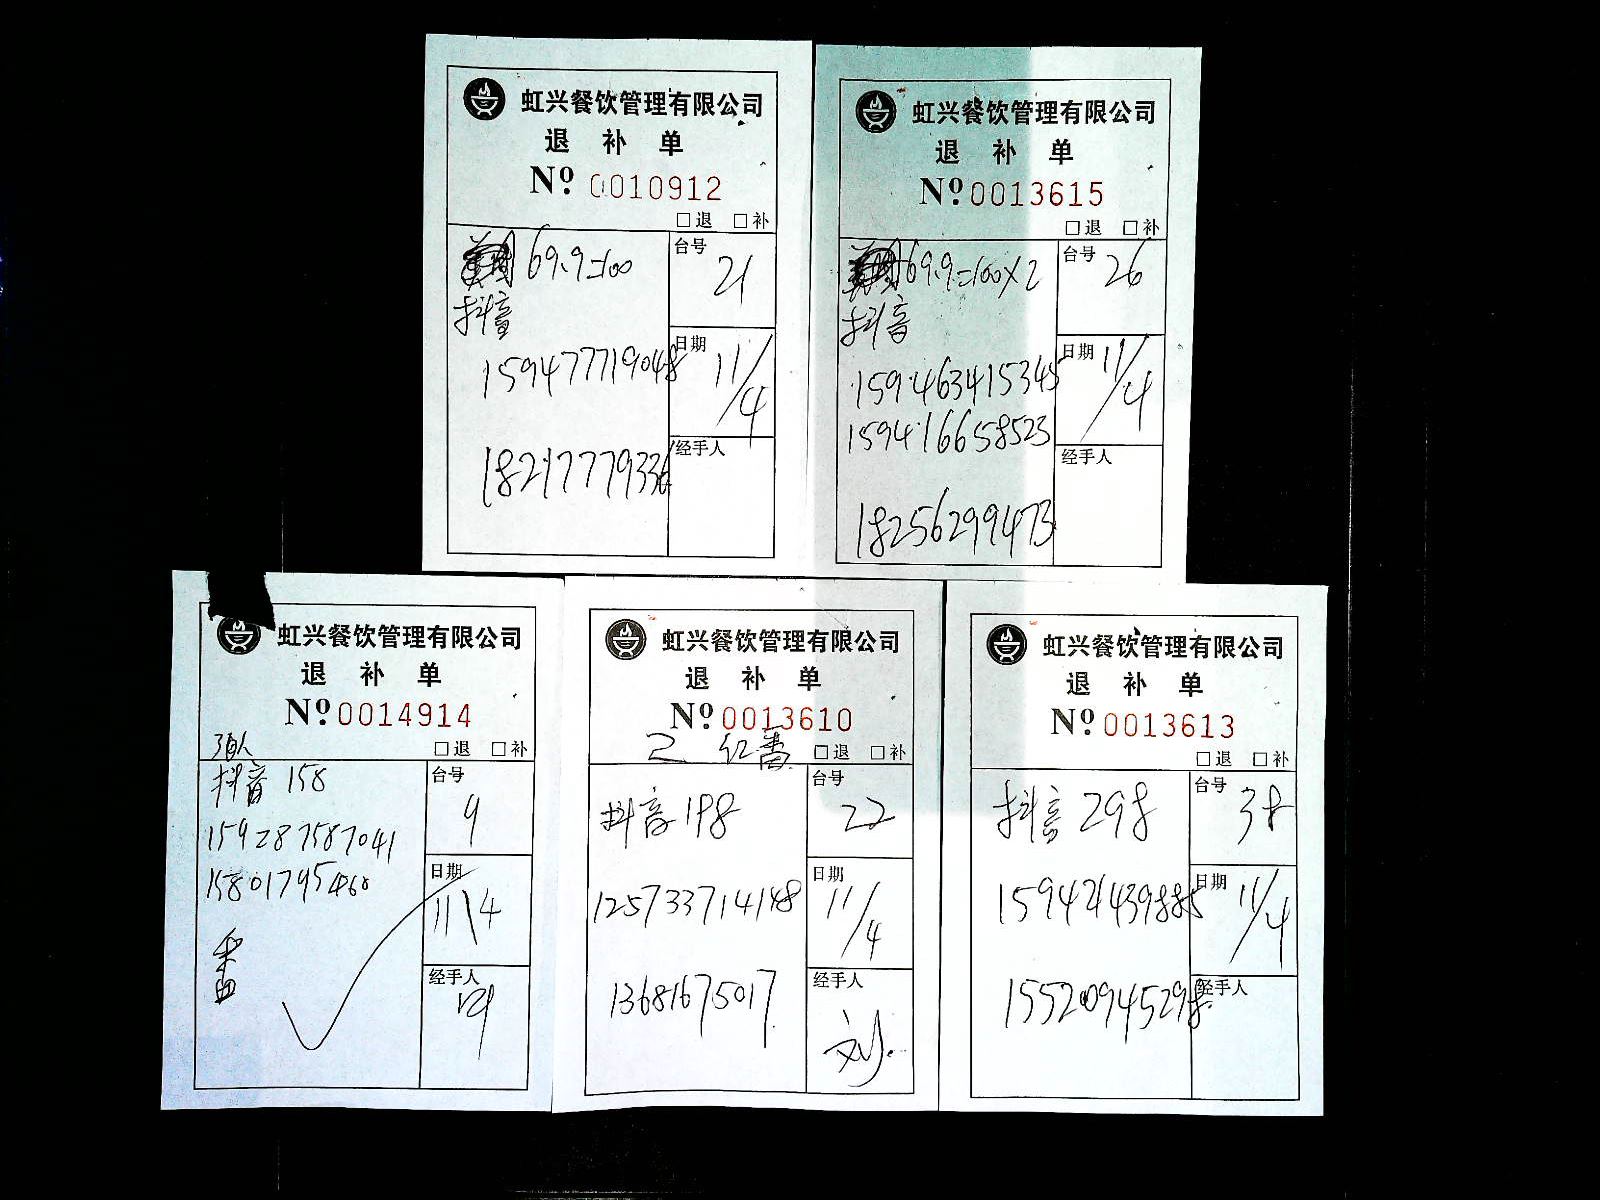 虹兴餐饮管理有限公司
退 补 单
Nº 0010912
□退 □补
69.9=100
抖音
159477719048
18217779336
台号
21
日期
11/4
经手人
虹兴餐饮管理有限公司
退 补 单
Nº 0013615
□退 □补
69.9=100×2
抖音
159463415345
159416658523
18256299473
台号
26
日期
11/4
经手人
虹兴餐饮管理有限公司
退 补 单
Nº 0014914
□退 □补
抖音 158
159287587041
15801795460
台号
9
日期
11\4
经手人
虹兴餐饮管理有限公司
退 补 单
Nº 0013610
□退 □补
抖音198
125733714148
13681675017
台号
22
日期
11/4
经手人
刘
虹兴餐饮管理有限公司
退 补 单
Nº 0013613
□退 □补
抖音 298
159421439885
15520945298
台号
38
日期
11/4
经手人